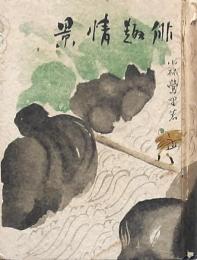 俳趣情景
小林鶯里著